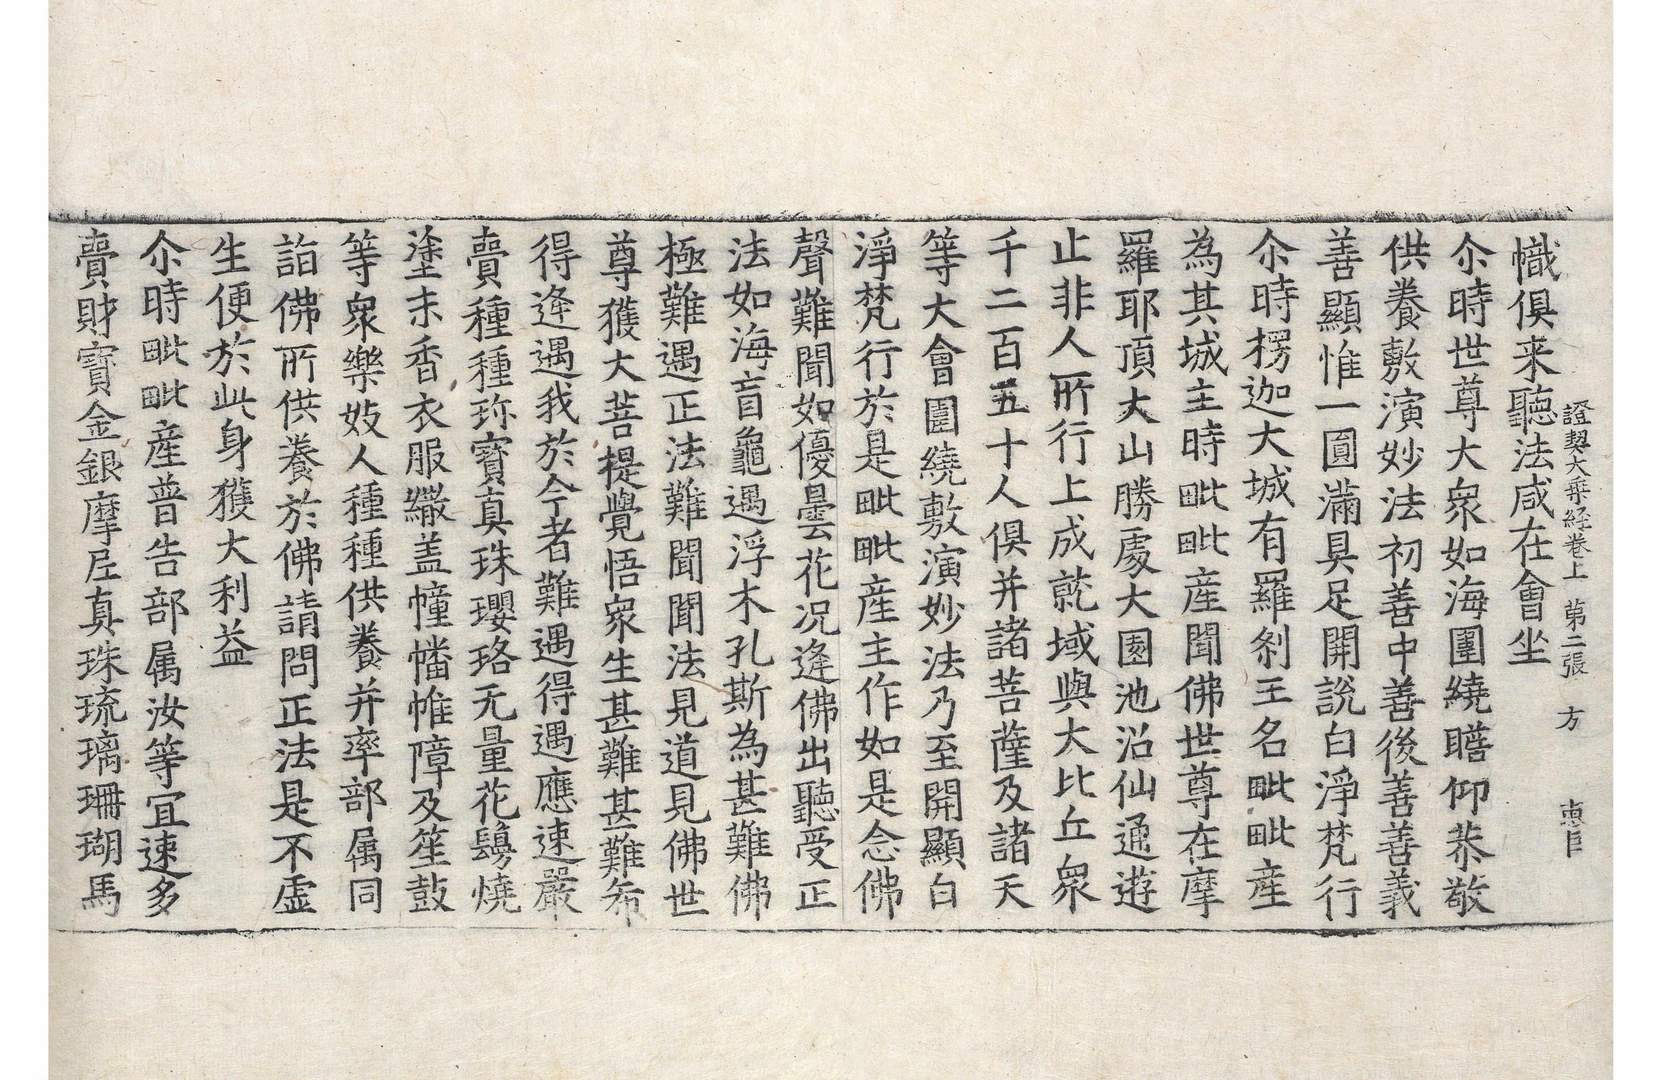 證契大乘経卷上 第二張 方
幟俱来聽法咸在會坐
尒時世尊大衆如海圍繞瞻仰恭敬
供養敷演妙法初善中善後善善義
善顯惟一圓滿具足開說白淨梵行
尒時楞迦大城有羅刹王名毗毗産
為其城主時毗毗産聞佛世尊在摩
羅耶頂大山勝處大園池沼仙通遊
止非人所行上成就域與大比丘衆
千二百五十人俱并諸菩薩及諸天
等大會圍繞敷演妙法乃至開顯白
淨梵行於是毗毗産主作如是念佛
聲難聞如優曇花况逢佛出聽受正
法如海盲龜遇浮木孔斯為甚難佛
極難遇正法難聞聞法見道見佛世
尊獲大菩提覺悟衆生甚難甚難希
得逢遇我於今者難遇得遇應速嚴
賷種種珎寶真珠瓔珞无量花鬘燒
塗末香衣服繖盖幢幡帷障及笙鼓
等衆樂妓人種種供養并率部属同
詣佛所供養於佛請問正法是不虚
生便於此身獲大利益
尒時毗毗産普告部属汝等宜速多
賷財寶金銀摩尼真珠琉璃珊瑚馬